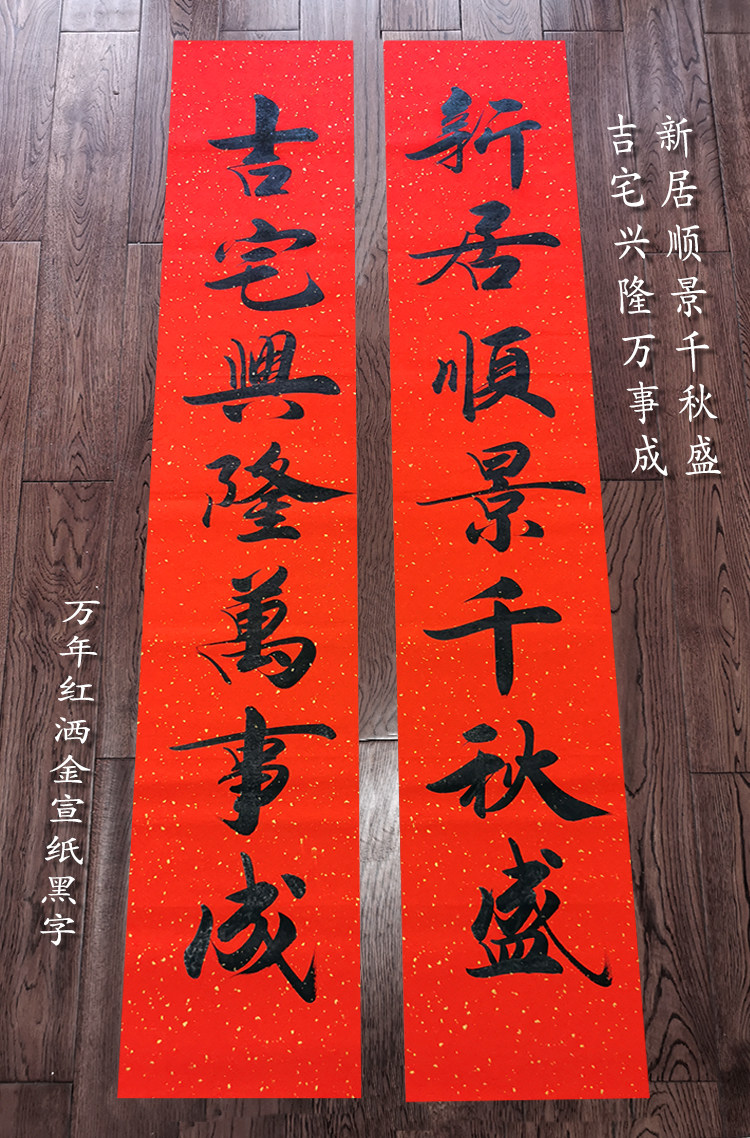 新居順景千秋盛
吉宅興隆萬事成
新居顺景千秋盛
吉宅兴隆万事成
万年红洒金宣纸黑字